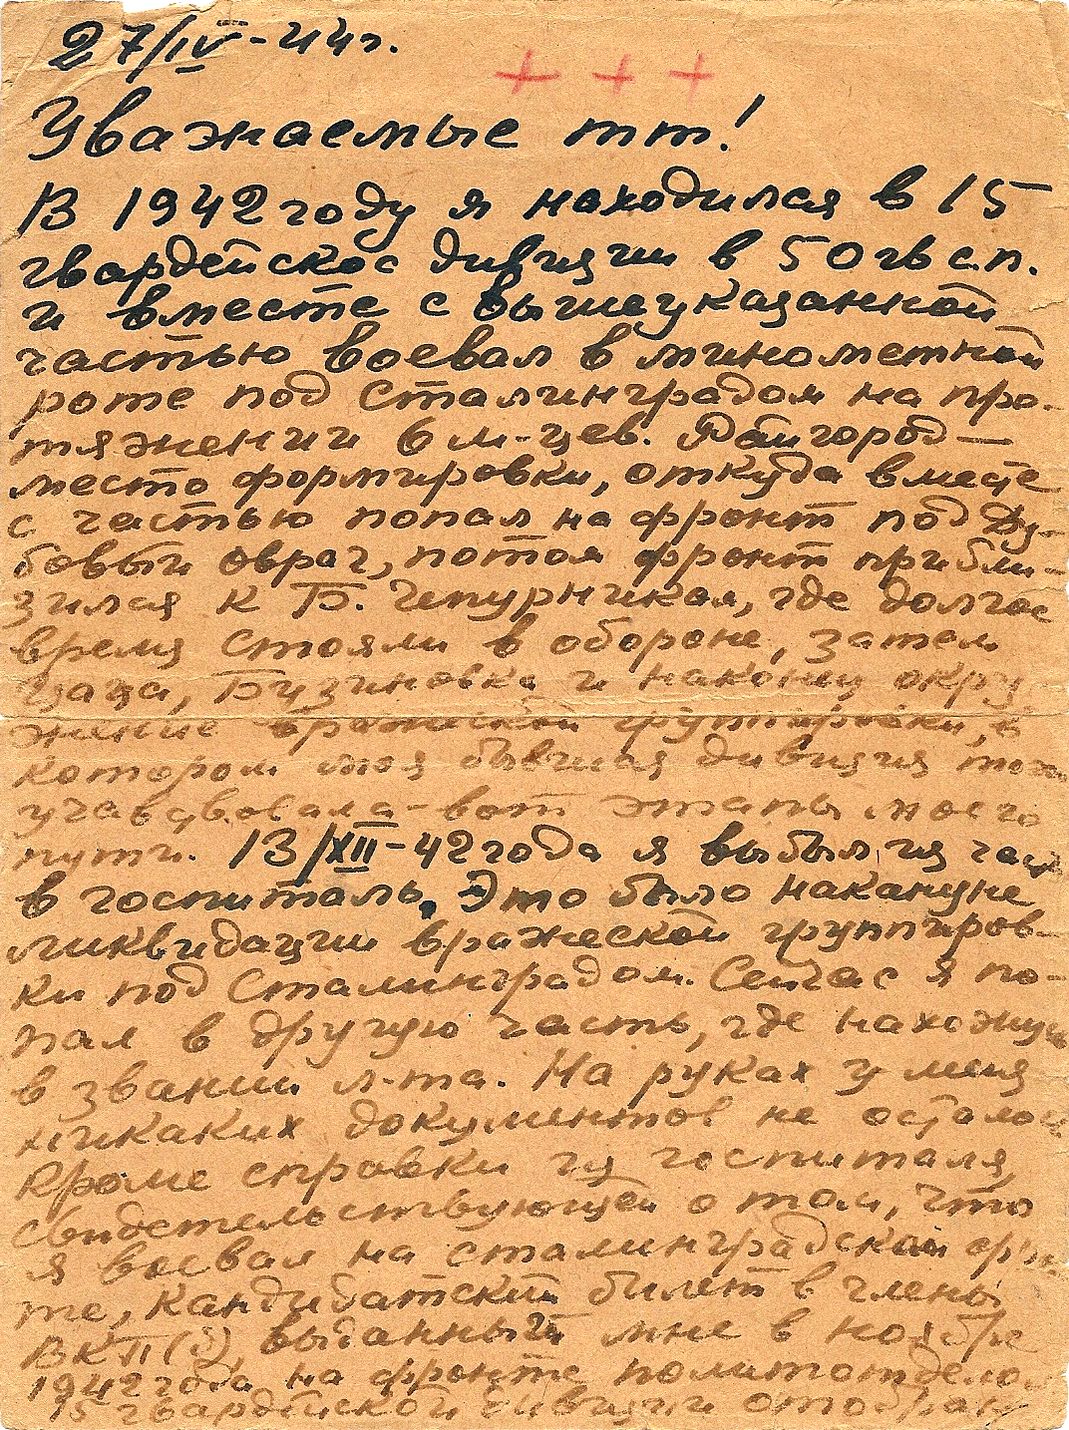 27/IV-44г.
+ + +
Уважаемые тт!
В 1942 году я находился в 15
гвардейской дивизии в 50 гв с.п.
и вместе с вышеуказанной
частью воевал в минометной
роте под Сталинградом на про-
тяжении 6 м-цев. Райгород —
место формировки, откуда вместе
с частью попал на фронт под Ду-
бовый овраг, потом фронт прибли-
зился к Б. Чепурникам, где долгое
время стояли в обороне, затем
Цаца, Бузиновка и наконец окру
жение вражеской группировки, в
котором моя бывшая дивизия тоже
учавствовала - вот этапы моего
пути. 13/XII-42 года я выбыл из части
в госпиталь. Это было накануне
ликвидации вражеской группиров-
ки под Сталинградом. Сейчас я по-
пал в другую часть, где нахожусь
в звании л-та. На руках у меня
никаких документов не осталось
кроме справки из госпиталя,
свидетельствующей о том, что
я воевал на сталинградском фрон
те, кандидатский билет в члены
ВКП(б), выданный мне в ноябре
1942 года на фронте политотделом
15 гвардейской дивизии отобран